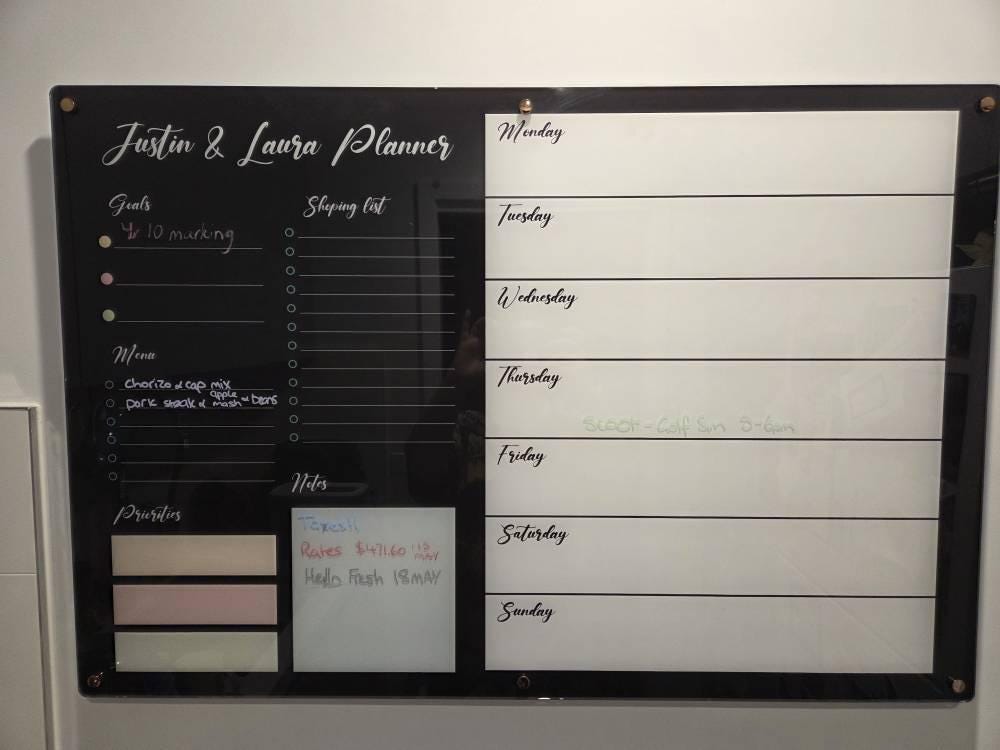 Justin & Laura Planner
Goals
Yr 10 marking
Shoping list
Menu
chorizo & cap mix
pork steak & apple mash & beans
Priorities
Notes
Taxes!!
Rates $471.60 13 MAY
Hello Fresh 18 MAY
Monday
Tuesday
Wednesday
Thursday
Scoot - Golf Sun 5-6pm
Friday
Saturday
Sunday